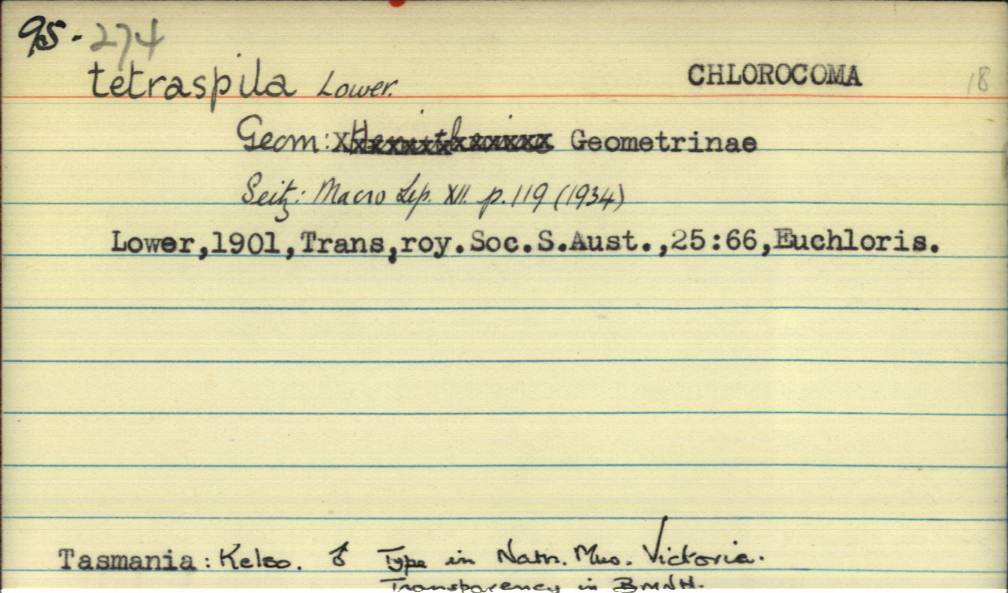 95-274
tetraspila Lower. CHLOROCOMA 18
Geom: Geometrinae
Seitz: Macro Lep. XII. p.119 (1934)
Lower,1901,Trans,roy.Soc.S.Aust.,25:66,Euchloris.
Tasmania: Kelso. ♂ Type in Natn. Mus. Victoria.
Transparency in BMNH.